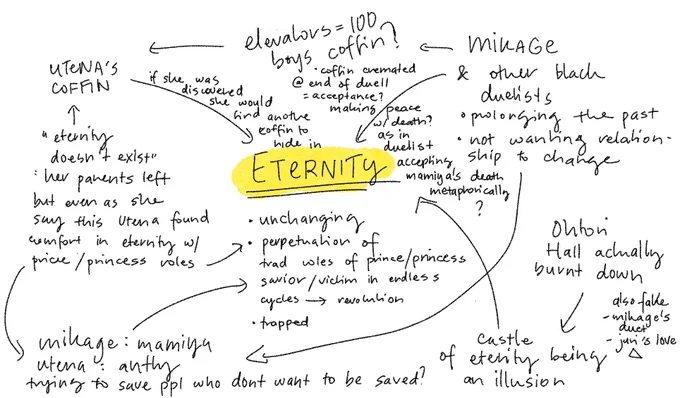 elevators = 100
boys coffin?
• coffin cremated
@ end of duell
= acceptance?
making peace
w/ death?
as in
duelist
accepting
mamiya's death
metaphorically
?
MIKAGE
& other black
duelists
• prolonging the past
• not wanting relation-
ship to change
UTENA'S
COFFIN
if she was
discovered
she would
find another
coffin to
hide in
"eternity
doesn't exist"
: her parents left
but even as she
say this Utena found
comfort in eternity w/
price/princess roles
ETERNITY
• unchanging
• perpetuation of
trad roles of prince/princess
savior/victim in endless
cycles → revolution
• trapped
Ohtori
Hall actually
burnt down
also fake
- mikage's
duel
- juri's love
castle
of eterity being
an illusion
mikage : mamiya
utena : anthy
trying to save ppl who dont want to be saved?